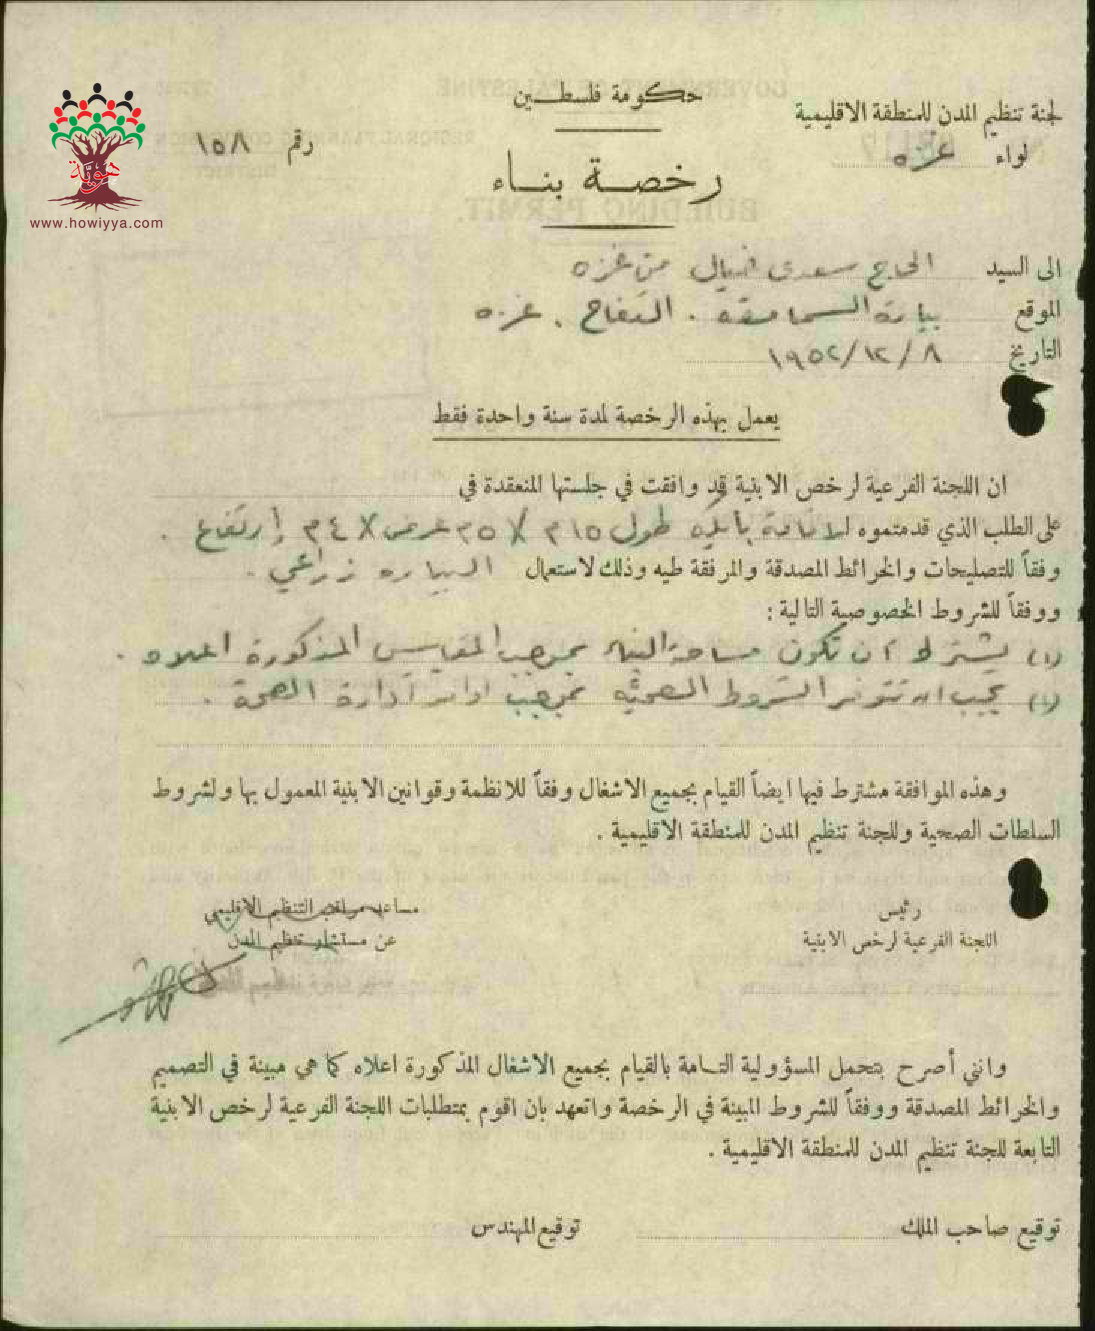 حكومة فلسطين
لجنة تنظيم المدن للمنطقة الاقليمية
لواء غزه
رقم ١٥٨
هوية
www.howiyya.com
رخصة بناء
الى السيد الحاج سعدي من غزه
الموقع بيارة . التفاح . غزه
التاريخ ٨ / ١٢ / ١٩٥٢
يعمل بهذه الرخصة لمدة سنة واحدة فقط
ان اللجنة الفرعية لرخص الابنية قد وافقت في جلستها المنعقدة في
على الطلب الذي قدمتموه لاقامة بايكه طول ١٥م X ٥م عرض X ٤م إرتفاع .
وفقاً للتصليحات والخرائط المصدقة والمرفقة طيه وذلك لاستعمال البياره زراعي .
ووفقاً للشروط الخصوصية التالية :
(١) يشترط أن تكون مساحة البناء بموجب المقاييس المذكورة اعلاه .
(٢) يجب ان تتوفر الشروط الصحيه بموجب اوامر ادارة الصحة .
وهذه الموافقة مشترط فيها ايضاً القيام بجميع الاشغال وفقاً للانظمة وقوانين الابنية المعمول بها ولشروط
السلطات الصحية وللجنة تنظيم المدن للمنطقة الاقليمية .
رئيس
اللجنة الفرعية لرخص الابنية
مساعد مراقب التنظيم الاقليمي
عن مستشار تنظيم المدن
وانني أصرح بتحمل المسؤولية التامة بالقيام بجميع الاشغال المذكورة اعلاه كما هي مبينة في التصميم
والخرائط المصدقة ووفقاً للشروط المبينة في الرخصة واتعهد بان اقوم بمتطلبات اللجنة الفرعية لرخص الابنية
التابعة للجنة تنظيم المدن للمنطقة الاقليمية .
توقيع صاحب الملك
توقيع المهندس